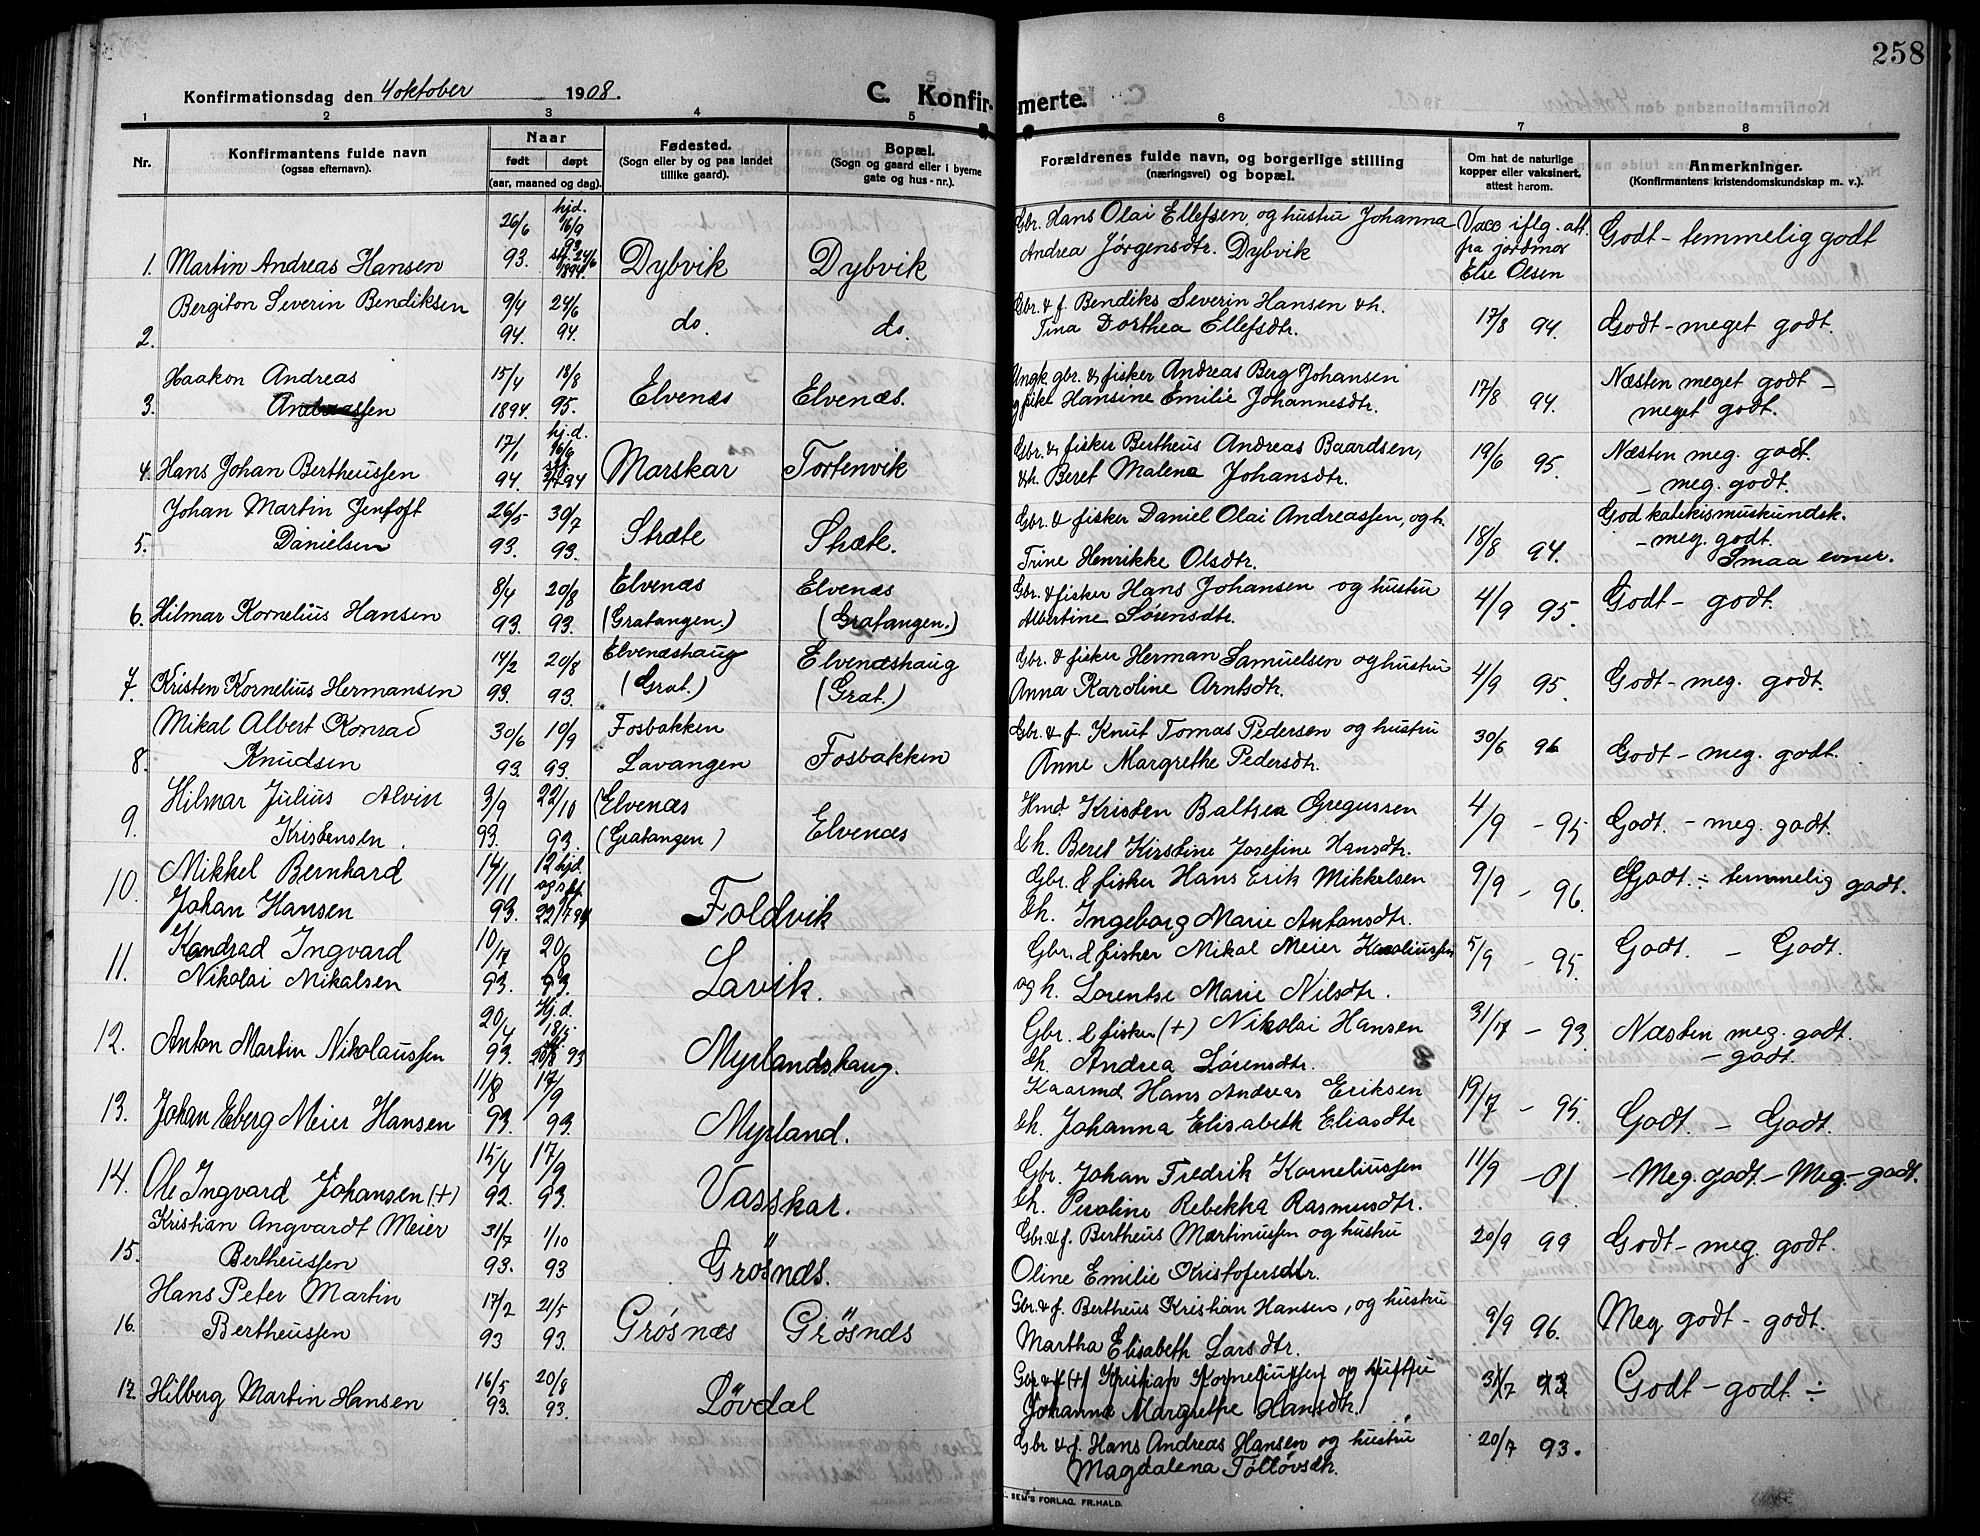 258
Konfirmationsdag den 4 oktober 1908.
C. Konfirmerte.
1 2 3 4 5 6 7 8
Nr.
Konfirmantens fulde navn
(ogsaa efternavn).
Naar
født døpt
(aar, maaned og dag).
Fødested.
(Sogn eller by og paa landet
tillike gaard).
Bopæl.
(Sogn og gaard eller i byerne
gate og hus-nr.).
Forældrenes fulde navn, og borgerlige stilling
(næringsvei) og bopæl.
Om hat de naturlige
kopper eller vaksinert,
attest herom.
Anmerkninger.
(Konfirmantens kristendomskundskap m. v.).
1. Martin Andreas Hansen
26/6 93.
hjd. 16/9 93 stf. 24/6 1894.
Dybvik
Dybvik
Gbr. Hans Olai Ellefsen og hustru Johanna
Andrea Jørgensdtr. Dybvik
Vacc iflg. att.
fra jordmor
Else Olsen
Godt - temmelig godt
2. Bergiton Severin Bendiksen
9/4 94.
24/6 94.
do.
do.
Gbr. & f. Bendiks Severin Hansen & h.
Tina Dorthea Ellefsdtr.
17/8 94.
Godt - meget godt.
3. Haakon Andreas
Andreassen
15/4 1894.
18/8 95.
Elvenæs
Elvenæs.
Ungk. gbr. & fisker Andreas Berg Johansen
og pike Hansine Emilie Johannesdtr.
17/8 94.
Næsten meget godt -
meget godt.
4. Hans Johan Bertheussen
17/1 94.
hj.d.
Marskar
Tortenvik
Gbr. & fisker Bertheus Andreas Baardsen,
& h. Beret Malena Johansdtr.
19/6 95.
Næsten meg. godt.
- meg. godt.
5. Johan Martin Jentoft
Danielsen
26/5 93.
30/7 93.
Stræte
Stræte.
Gbr. & fisker Daniel Olai Andreassen, og h.
Trine Henrikke Olsdtr.
18/8 94.
God katekismuskundsk.
- meg. godt.
Smaa evner.
6. Hilmar Kornelius Hansen
8/4 93.
20/8 93.
Elvenæs
(Gratangen.)
Elvenæs
(Gratangen.)
Gbr. & fisker Hans Johansen og hustru
Albertine Sørensdtr.
4/9 95.
Godt - godt.
7. Kristen Kornelius Hermansen
14/2 93.
20/8 93.
Elvenæshaug
(Grat.)
Elvenæshaug
(Grat.)
Gbr. & fisker Herman Samuelsen og hustru
Anna Karoline Arntsdtr.
4/9 95.
Godt - meg. godt.
8. Mikal Albert Konrad
Knudsen
30/6 93.
10/9 93.
Fosbakken
Lavangen
Fosbakken
Gbr. & f. Knut Tomas Pedersen og hustru
Anne Margrethe Pedersdtr.
30/6 96
Godt - meg. godt.
9. Hilmar Julius Alvin
Kristensen.
3/9 93.
22/10 93.
(Elvenæs
(Gratangen)
Elvenæs
Hmd. Kristen Baltser Gregussen
& h. Beret Kirstine Josefine Hansdtr.
4/9 - 95
Godt. - meg. godt.
10. Mikkel Bernhard
Johan Hansen
14/11 93.
Foldvik
Gbr. & fisker Hans Erik Mikkelsen
& h. Ingeborg Marie Antonsdtr.
9/9 - 96.
Godt. ÷ temmelig godt.
11. Kondrad Ingvard
Nikolai Mikalsen
10/7 93.
20/8 93.
Lavik.
Gbr. & fisker Mikal Meier Karoliussen
og h. Lorentse Marie Nilsdtr.
5/9 - 95.
Godt. - Godt.
12. Anton Martin Nikolaussen
20/4 93.
Hj.d. 18/5 stf. 20/8 93
Myrlandshaug.
Gbr. & fisker (+) Nikolai Hansen
& h. Andrea Sørensdtr.
31/7 - 93.
Næsten meg. godt.
- godt.
13. Johan Eberg Meier Hansen
11/8 93.
17/9 93.
Myrland.
Kaarmd Hans Andreas Eriksen
& h. Johanna Elisabeth Eliasdtr
19/7 - 95.
Godt. - Godt.
14. Ole Ingvard Johansen (+)
15/4 92.
17/9 93.
Vasskar.
Gbr. Johan Fredrik Korneliussen
& h. Peroline Rebekka Rasmusdtr.
11/9 - 01
- Meg. godt. - Meg. - godt.
15. Kristian Angvardt Meier
Bertheussen
31/7 93.
1/10 93
Grøsnæs.
Gbr. & f. Bertheus Martinussen og hustru
Oline Emilie Kristofersdtr.
20/9 99
Godt - meg. godt.
16. Hans Peter Martin
Bertheussen
17/2 93
21/5 93.
Grøsnæs
Grøsnæs
Gbr. & f. Bertheus Kristian Hansen, og hustru
Martha Elisabeth Larsdtr.
9/9 96.
Meg godt - godt.
17. Hilberg Martin Hansen
16/5 93.
20/8 93.
Løvdal
Gbr & f (+) Kristian Korneliussen og hustru
Johanna Margrethe Hansdtr.
31/7 93
Godt - godt ÷
Gbr & f. Hans Andreas Hansen og hustru
Magdalena Tolløvsdtr.
20/7 93.
SEM'S FORLAG. FR.HALD.